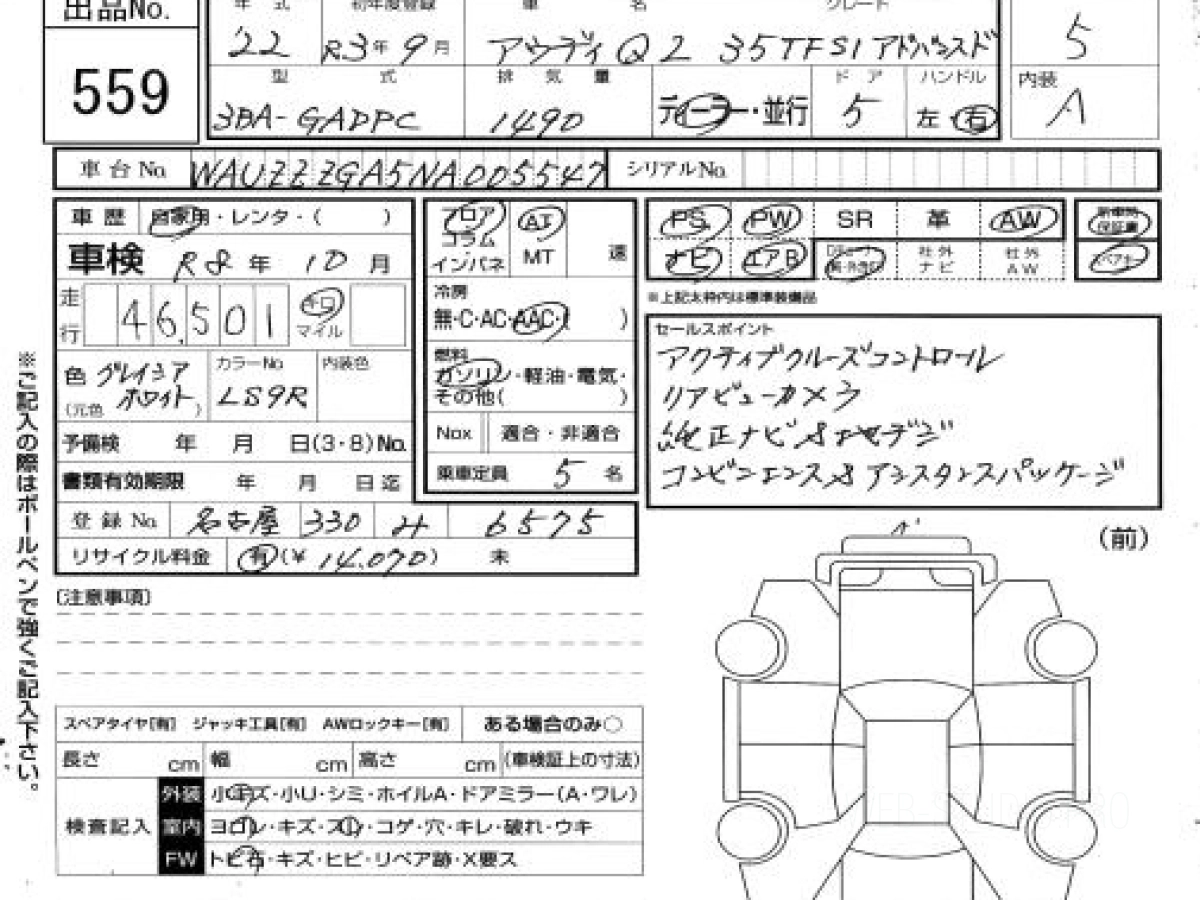 出品No.
年式 初年度登録 車名 グレード
22 R3年9月 アウディQ2 35TFSIアドバンスド 5
559
型式 排気量 ドア ハンドル 内装
3BA-GADPC 1490 ディーラー・並行 5 左・右 A
車台No. WAUZZZGA5NA005547 シリアルNo.
車歴 自家用・レンタ・( )
車検 R8年10月
走行 46,501 キロ マイル
色 グレイシアホワイト (元色 )
カラーNo LS9R 内装色
予備検 年 月 日(3・8)No.
書類有効期限 年 月 日迄
登録No. 名古屋 330 6575
リサイクル料金 有(¥14,070) 未
フロア コラム インパネ
AT MT 速
冷房
無・C・AC・AAC・( )
燃料
ガソリン・軽油・電気・
その他( )
Nox 適合・非適合
乗車定員 5名
PS PW SR 革 AW 新車時保証書
ナビ エアB 社外ナビ 社外AW スペアキー
※上記太枠内は標準装備品
セールスポイント
アクティブクルーズコントロール
リアビューカメラ
純正ナビ&地デジ
コンビニエンス&アシスタンスパッケージ
(前)
A1
[注意事項]
※ご記入の際はボールペンで強くご記入下さい。
スペアタイヤ[有] ジャッキ工具[有] AWロックキー[有] ある場合のみ○
長さ cm 幅 cm 高さ cm (車検証上の寸法)
検査記入
外装 小キズ・小U・シミ・ホイルA・ドアミラー(A・ワレ)
室内 ヨゴレ・キズ・スレ・コゲ・穴・キレ・破れ・ウキ
FW トビ石・キズ・ヒビ・リペア跡・X要ス